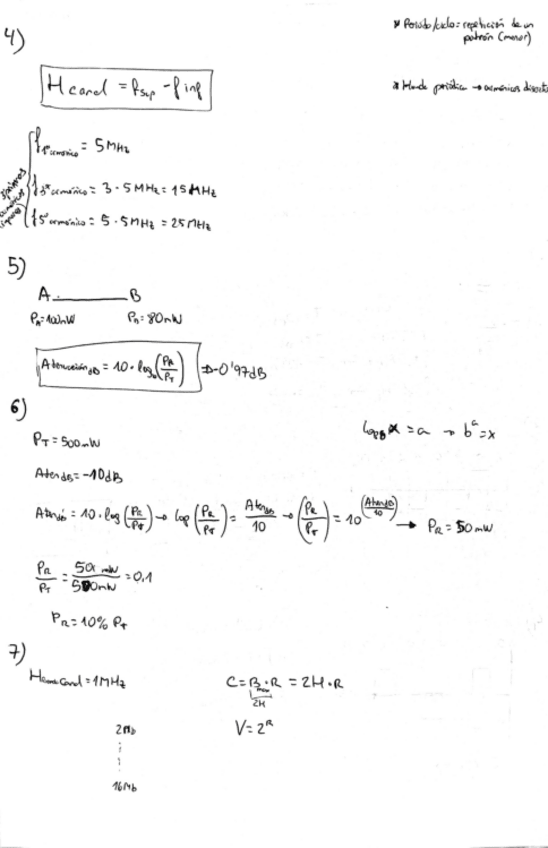 * Periodo/ciclo = repetición de un
patrón (menor)
4)
H canal = f sup - f inf
* Onda periódica → armónicos discretos
3 primeros armónicos impares
f 1º armónico = 5 MHz
f 3º armónico = 3 · 5 MHz = 15 MHz
f 5º armónico = 5 · 5 MHz = 25 MHz
5)
A B
P_A = 100mW P_B = 80mW
Atenuación dB = 10 · log₁₀(P_R/P_T) ⇒ -0'97dB
6)
P_T = 500mW
log_b x = a → b^a = x
Aten dB = -10dB
Aten dB = 10 · log(P_R/P_T) → log(P_R/P_T) = Aten dB/10 → (P_R/P_T) = 10^(Aten dB/10) → P_R = 50mW
P_R/P_T = 50 mW/500mW = 0,1
P_R = 10% P_T
7)
Canal = 1MHz
C = B max · R = 2H · R
2H
2Mb
V = 2^R
16Mb